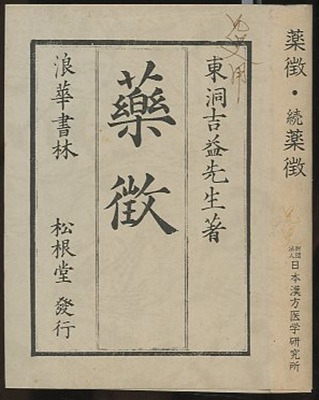 東洞吉益先生著
藥徴
浪華書林 松根堂 發行
薬徴・続薬徴
財団法人 日本漢方医学研究所